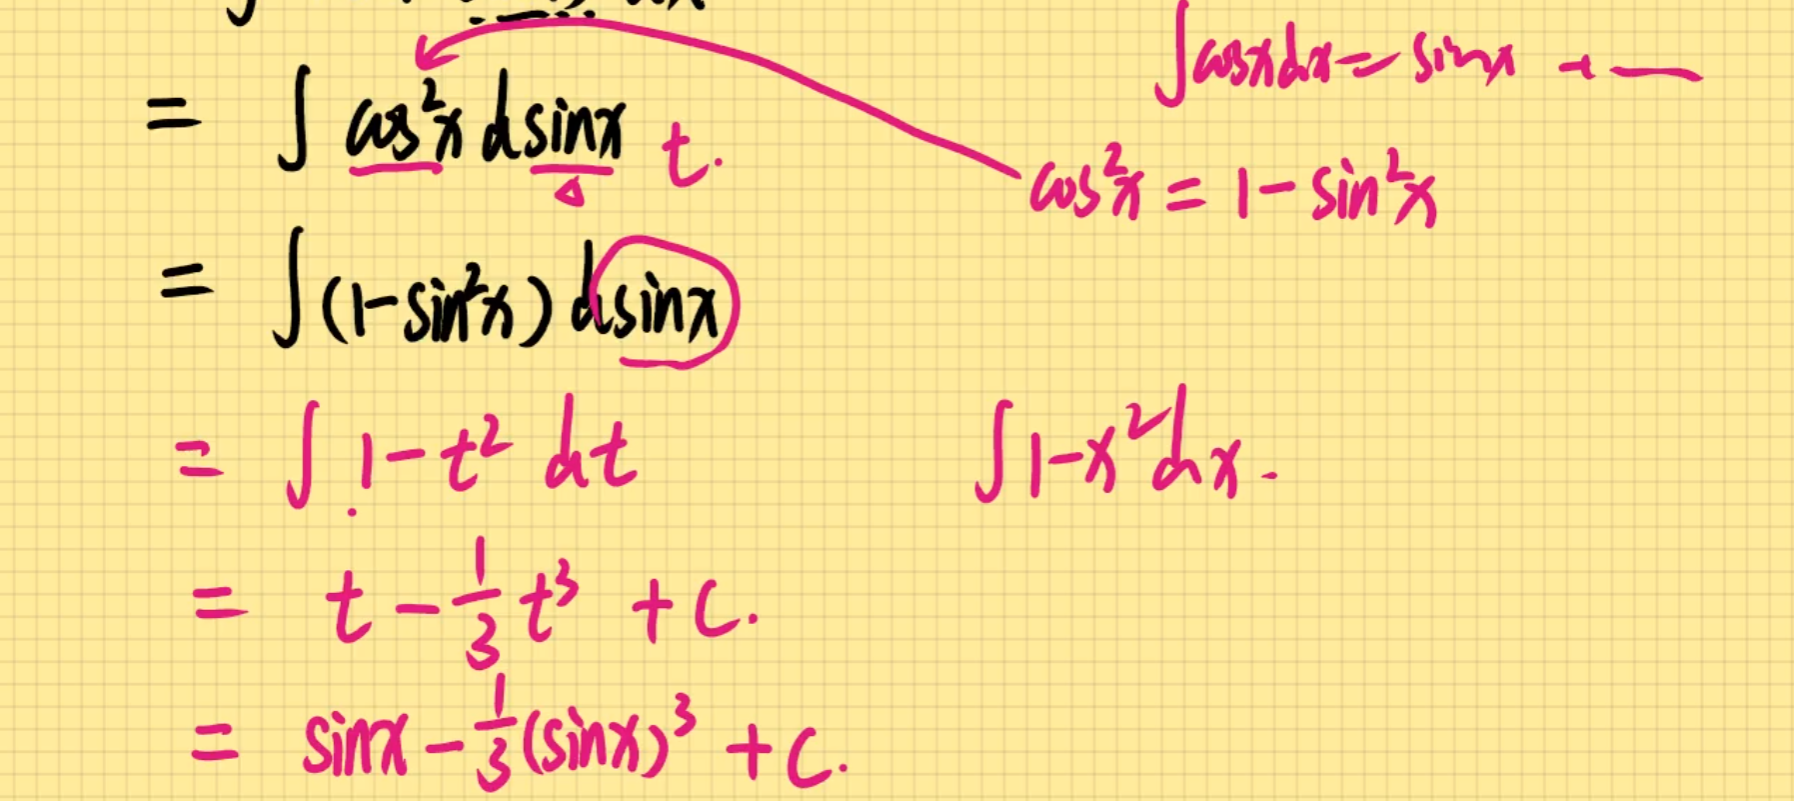 ∫cosxdx = sinx + —
= ∫ cos²x dsinx t.
cos²x = 1 - sin²x
= ∫(1-sin²x) dsinx
= ∫ 1-t² dt
∫1-x²dx.
= t - 1/3 t³ + C.
= sinx - 1/3 (sinx)³ + C.